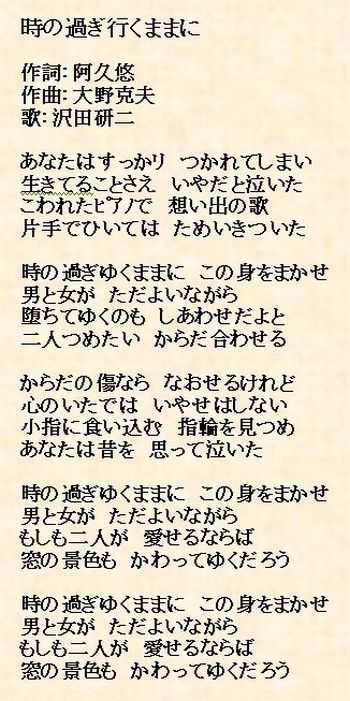 時の過ぎ行くままに
作詞：阿久悠
作曲：大野克夫
歌：沢田研二
あなたはすっかリ　つかれてしまい
生きてることさえ　いやだと泣いた
こわれたピアノで　想い出の歌
片手でひいては　ためいきついた
時の過ぎゆくままに　この身をまかせ
男と女が　ただよいながら
堕ちてゆくのも　しあわせだよと
二人つめたい　からだ合わせる
からだの傷なら　なおせるけれど
心のいたでは　いやせはしない
小指に食い込む　指輪を見つめ
あなたは昔を　思って泣いた
時の過ぎゆくままに　この身をまかせ
男と女が　ただよいながら
もしも二人が　愛せるならば
窓の景色も　かわってゆくだろう
時の過ぎゆくままに　この身をまかせ
男と女が　ただよいながら
もしも二人が　愛せるならば
窓の景色も　かわってゆくだろう